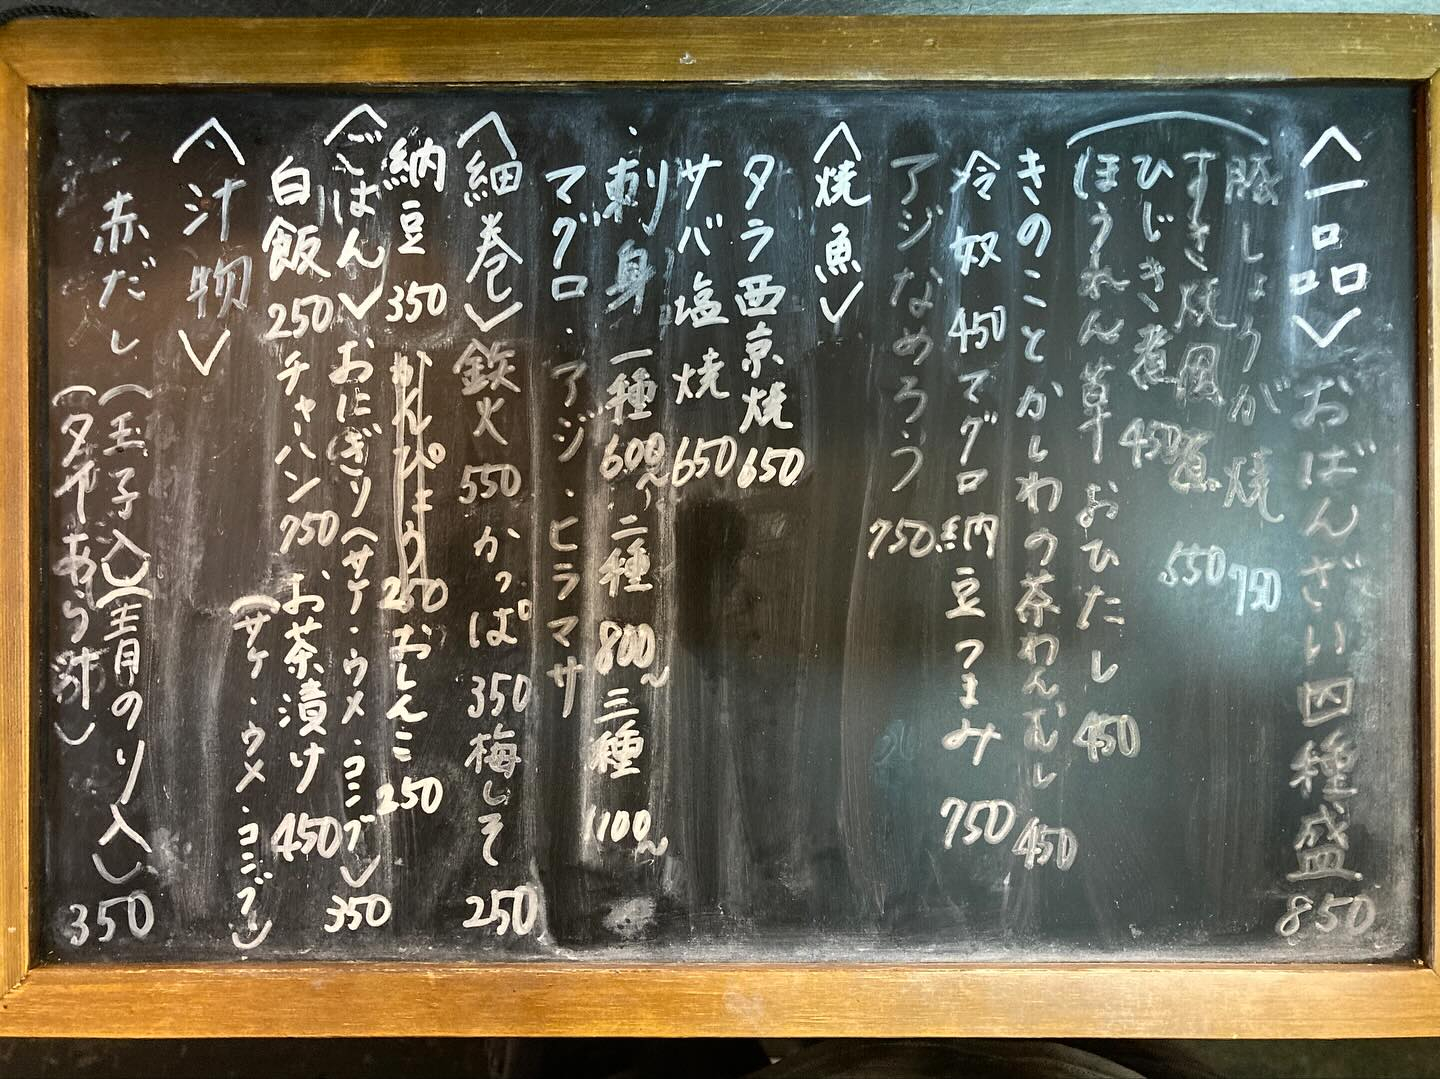 〈一品〉おばんざい四種盛 850
豚しょうが焼 750
すき焼風煮 550
ひじき煮 450
ほうれん草おひたし 450
きのことかしわの茶わんむし 450
冷奴 450 マグロ納豆つまみ 750
アジなめろう 750
〈焼魚〉
タラ西京焼 650
サバ塩焼 650
・刺身 一種 600〜、二種 800〜 三種 1100〜
マグロ・アジ・ヒラマサ
〈細巻〉鉄火 550 かっぱ 350 梅しそ 250
納豆 350 かんぴょう 250 おしんこ 250
〈ごはん〉おにぎり(サケ・ウメ・コンブ) 350
白飯 250 チャーハン 750 お茶漬け 450
(サケ・ウメ・コンブ)
〈汁物〉
赤だし (玉子入)(青のり入) 350
あら汁)